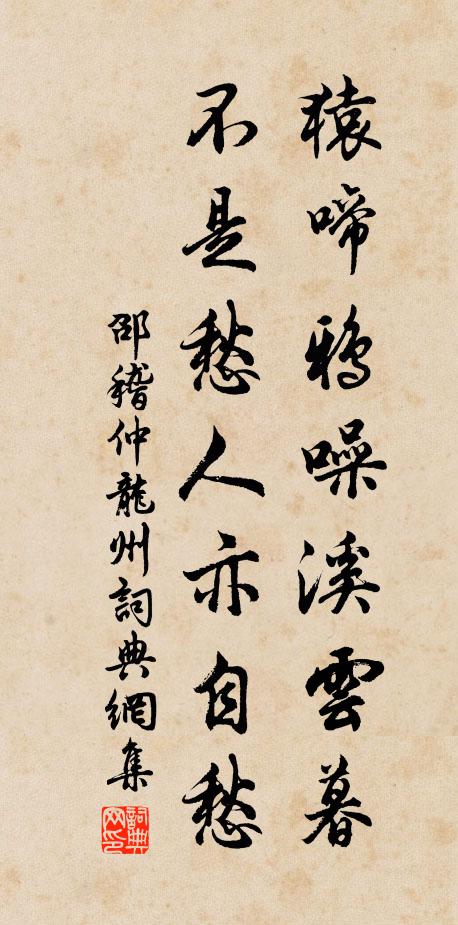 猿啼鴉噪溪雲暮
不是愁人亦自愁
邵稽仲龍州詞典網集
詞典網印